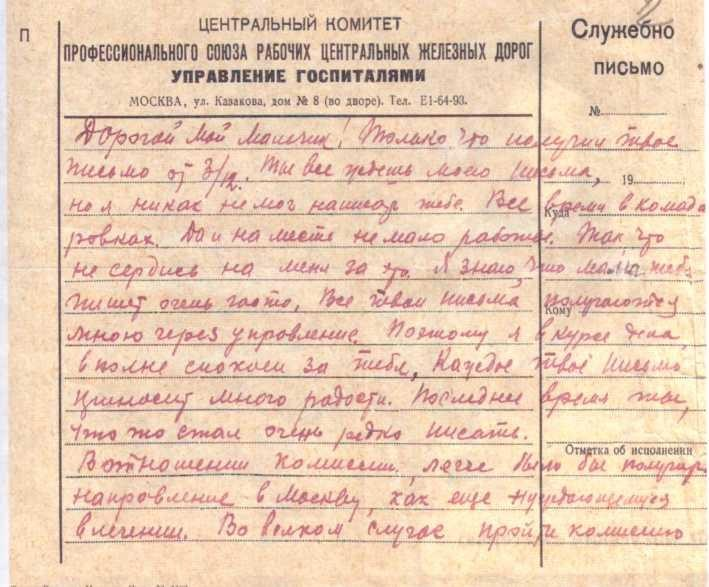 П
ЦЕНТРАЛЬНЫЙ КОМИТЕТ
ПРОФЕССИОНАЛЬНОГО СОЮЗА РАБОЧИХ ЦЕНТРАЛЬНЫХ ЖЕЛЕЗНЫХ ДОРОГ
УПРАВЛЕНИЕ ГОСПИТАЛЯМИ
МОСКВА, ул. Казакова, дом № 8 (во дворе). Тел. Е1-64-93.
Служебно
письмо
№
19
Куда
Кому
Отметка об исполнении
Дорогой мой мальчик! Только что получил твое
письмо от 3/12. Ты все ждешь моего письма,
но я никак не мог написать тебе. Все время в команди
ровках. Да и на месте не мало работы. Так что
не сердись на меня за это. Я знаю, что мама тебе
пишет очень часто, Все твои письма получаются
мною через управление. Поэтому я в курсе дела
вполне спокоен за тебя, Каждое твоё письмо
приносит много радости. Последнее время ты,
что то стал очень редко писать.
В отношении комиссии, легче было бы получить
направление в Москву, как еще нуждающемуся
в лечении. Во всяком случае пройди комиссию